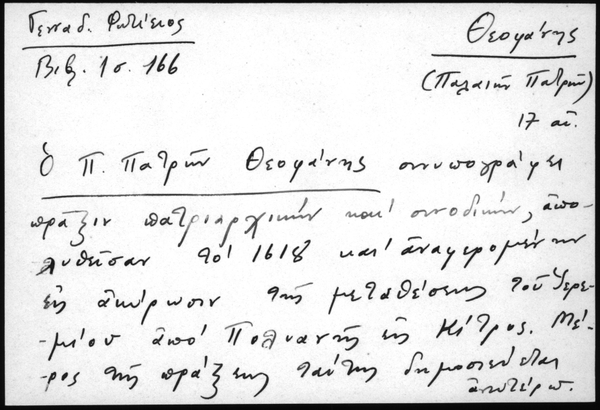 Γενναδ. Φωτίειος
Βιβ. 1 σ. 166
Θεοφάνης
(Παλαιῶν Πατρῶν)
17 αἰ.
Ὁ Π. Πατρῶν Θεοφάνης συνυπογράφει
πρᾶξιν πατριαρχικήν καί συνοδικήν, ἀπο-
λυθεῖσαν τό 1618 καί ἀναφερομένην
εἰς ἀκύρωσιν τῆς μεταθέσεως τοῦ Ἱερε-
μίου ἀπό Πολυανῆς εἰς Κίτρος. Μέ-
ρος τῆς πράξεως ταύτης δημοσιεύεται
ἀνωτέρω.